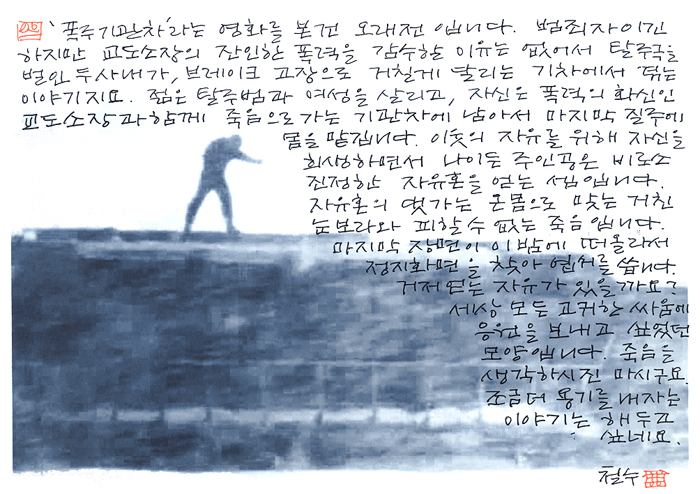 '폭주기관차'라는 영화를 본건 오래전 입니다. 범죄자이긴
하지만 교도소장의 잔인한 폭력을 감수할 이유는 없어서 탈주극을
벌인 두 사내가, 브레이크 고장으로 거칠게 달리는 기차에서 겪는
이야기지요. 젊은 탈주범과 여성을 살리고, 자신은 폭력의 화신인
교도소장과 함께 죽음으로 가는 기관차에 남아서 마지막 질주에
몸을 맡깁니다. 이웃의 자유를 위해 자신을
희생하면서 나이든 주인공은 비로소
진정한 자유혼을 얻는 셈입니다.
자유혼의 댓가는 온몸으로 맞는 거친
눈보라와 피할 수 없는 죽음입니다.
마지막 장면이 이 밤에 떠올라서
정지화면을 찾아 엽서를 씁니다.
거저 얻는 자유가 있을까요?
세상 모든 고귀한 싸움에
응원을 보내고 싶었던
모양입니다. 죽음을
생각하시진 마시구요.
조금 더 용기를 내자는
이야기는 해 두고
싶네요.
철수